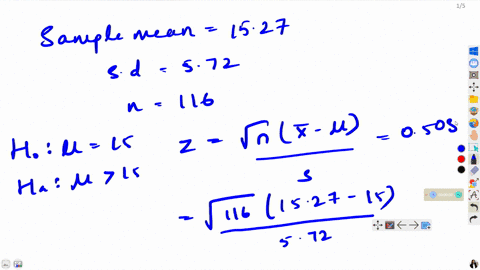 1/5
Sample mean = 15.27
s.d = 5.72
n = 116
H₀ : μ = 15
Hₐ : μ > 15
z = √n (x̄ - μ) / s = 0.508
= √116 (15.27 - 15) / 5.72